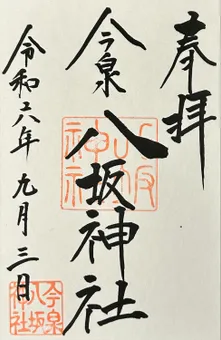 奉拝
今泉
八坂神社
令和六年 九月三日
八坂
神社
今泉
八坂
神社